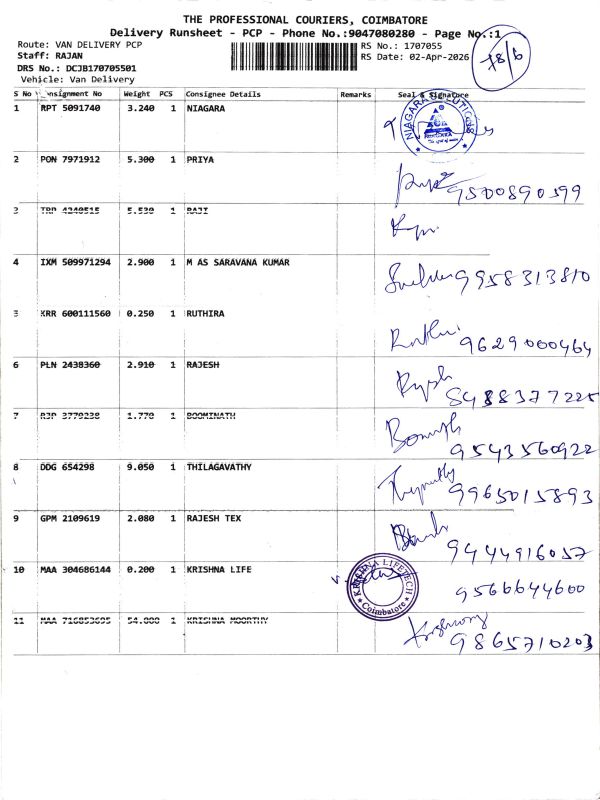 THE PROFESSIONAL COURIERS, COIMBATORE
Delivery Runsheet - PCP - Phone No.:9047080280 - Page No.:1
Route: VAN DELIVERY PCP RS No.: 1707055
Staff: RAJAN RS Date: 02-Apr-2026
DRS No.: DCJB170705501
Vehicle: Van Delivery
S No Consignment No Weight PCS Consignee Details Remarks Seal & Signature
1 RPT 5091740 3.240 1 NIAGARA
2 PON 7971912 5.300 1 PRIYA
9500890599
3 TRP 4240515 5.530 1 RAJI
4 IXM 509971294 2.900 1 M AS SARAVANA KUMAR
9958313810
5 KRR 600111560 0.250 1 RUTHIRA
9629000464
6 PLN 2438360 2.910 1 RAJESH
8488377225
7 RJP 3770238 1.770 1 BOOMINATH
9543560922
8 DDG 654298 9.050 1 THILAGAVATHY
9965015893
9 GPM 2109619 2.080 1 RAJESH TEX
9444916057
10 MAA 304686144 0.200 1 KRISHNA LIFE
KRISHNA LIFETECH
Coimbatore
9566644600
11 MAA 716853695 54.000 1 KRISHNA MOORTHY
9865710203